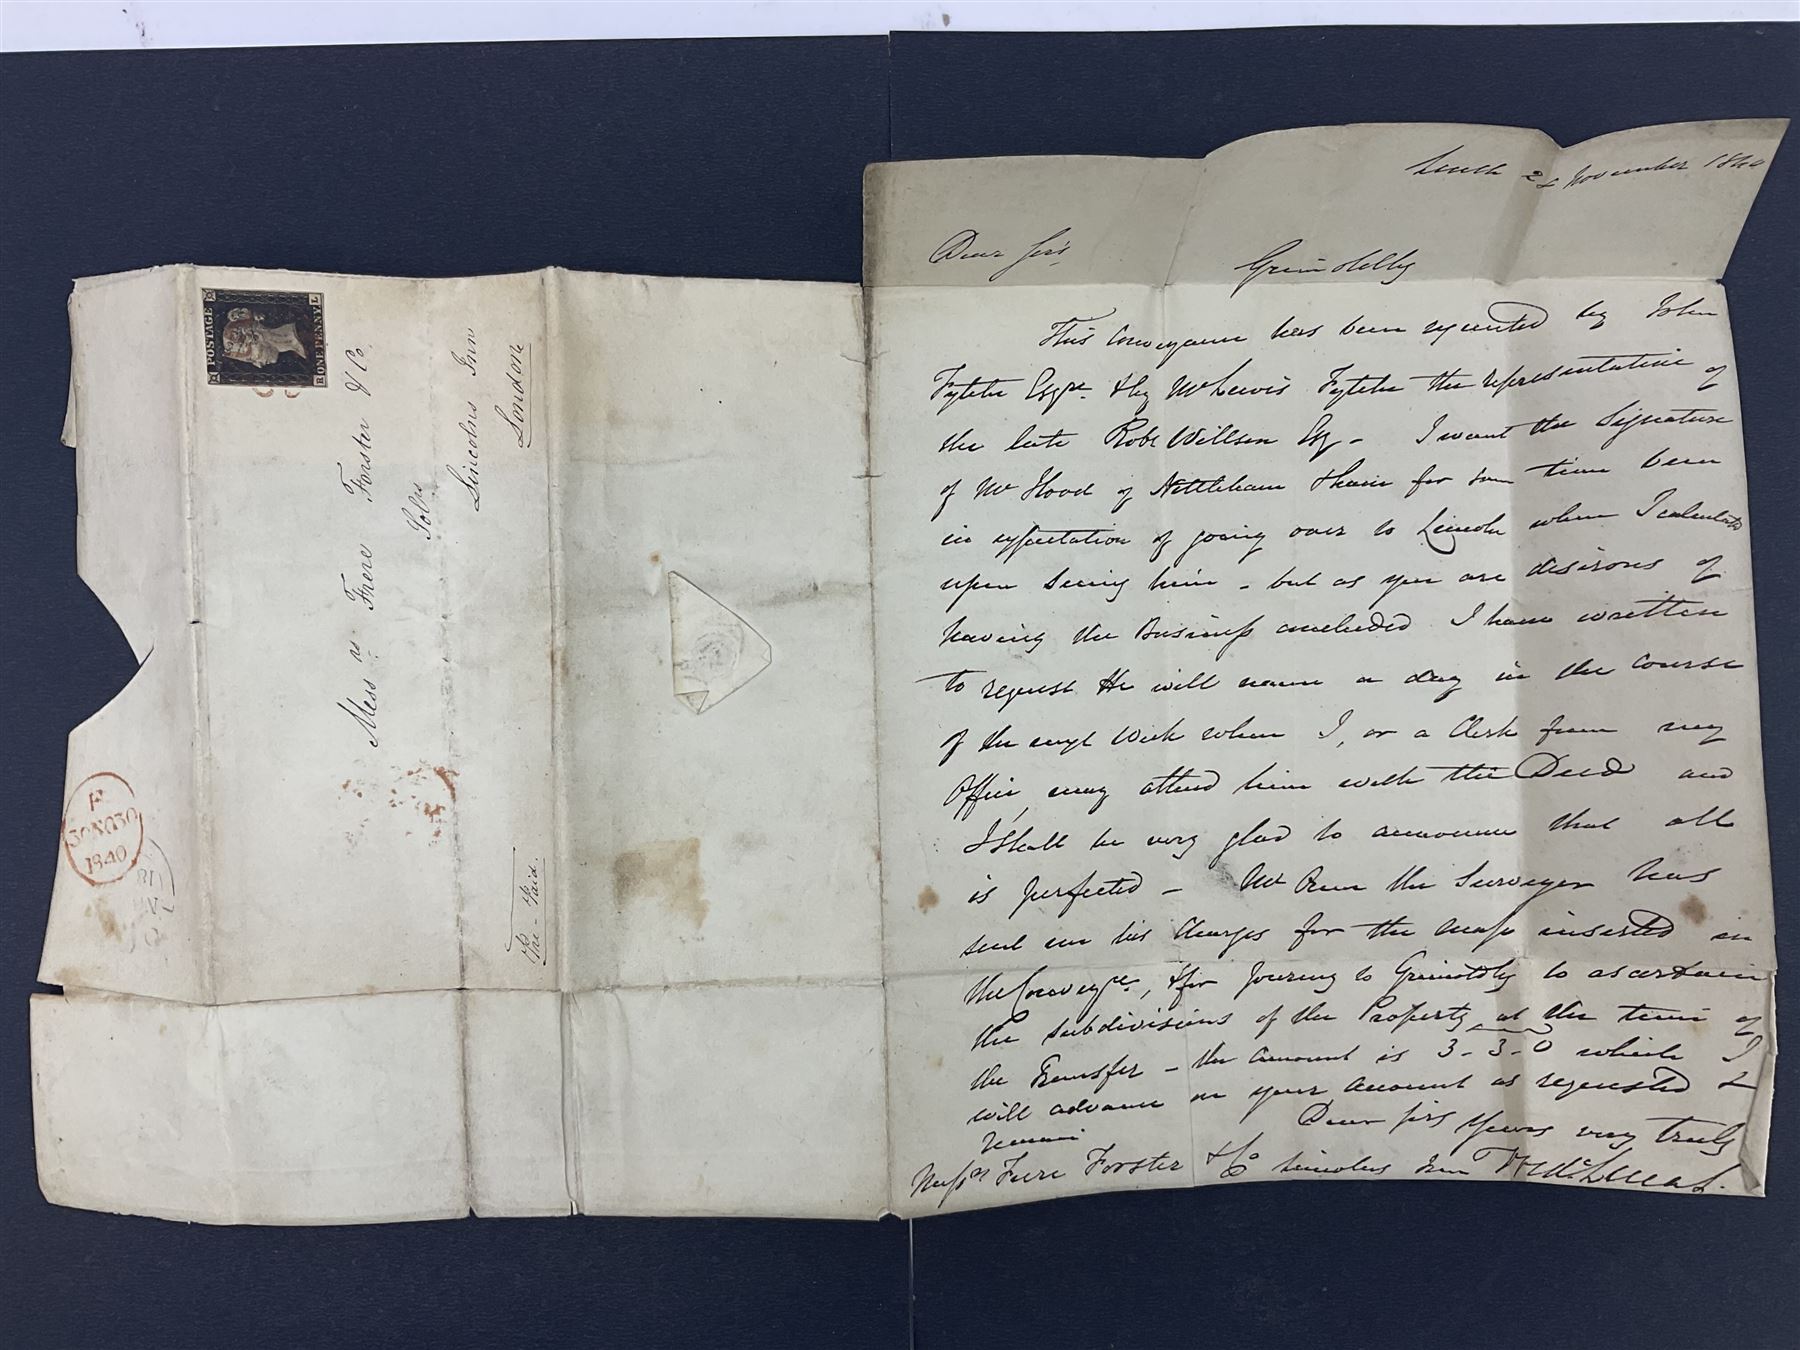 POSTAGE
ONE PENNY
R L
Mess rs Frere Forster & Co
Solrs
Lincolns Inn
London
Pre-Paid.
30 NO 30
1840
November 1840
Dear Sirs
This Conveyance has been executed by John
Fytche Esqre. & by Mr Lewis Fytche the representative of
the late Robt Willson Esq - I want the Signature
of Mr Hood of Nettleham & have for some time been
in expectation of going over to Lincoln when I calculated
upon seeing him - but as you are desirous of
having the Business concluded I have written
to request He will name a day in the course
of the next Week when I, or a Clerk from my
Office, may attend him with the Deed and
I shall be very glad to announce that all
is perfected - Mr the Surveyor has
sent me his Charges for the map inserted in
the Conveyce, & for Journey to Grimoldby to ascertain
the subdivisions of the Property at the time of
the Transfer - the amount is 3-3-0 which I
will advance on your Account as requested &
remain
Dear Sirs Yours very truly
Messrs Frere Forster & Co Lincolns Inn